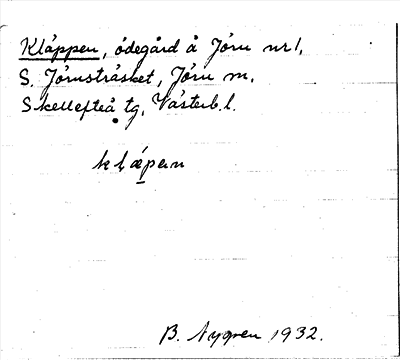 Kläppen, ödegård å Jörn nr 1,
S. Jörnsträsket, Jörn sn,
Skellefteå tg, Västerb. l.
klæpan
B. Nygren 1932.